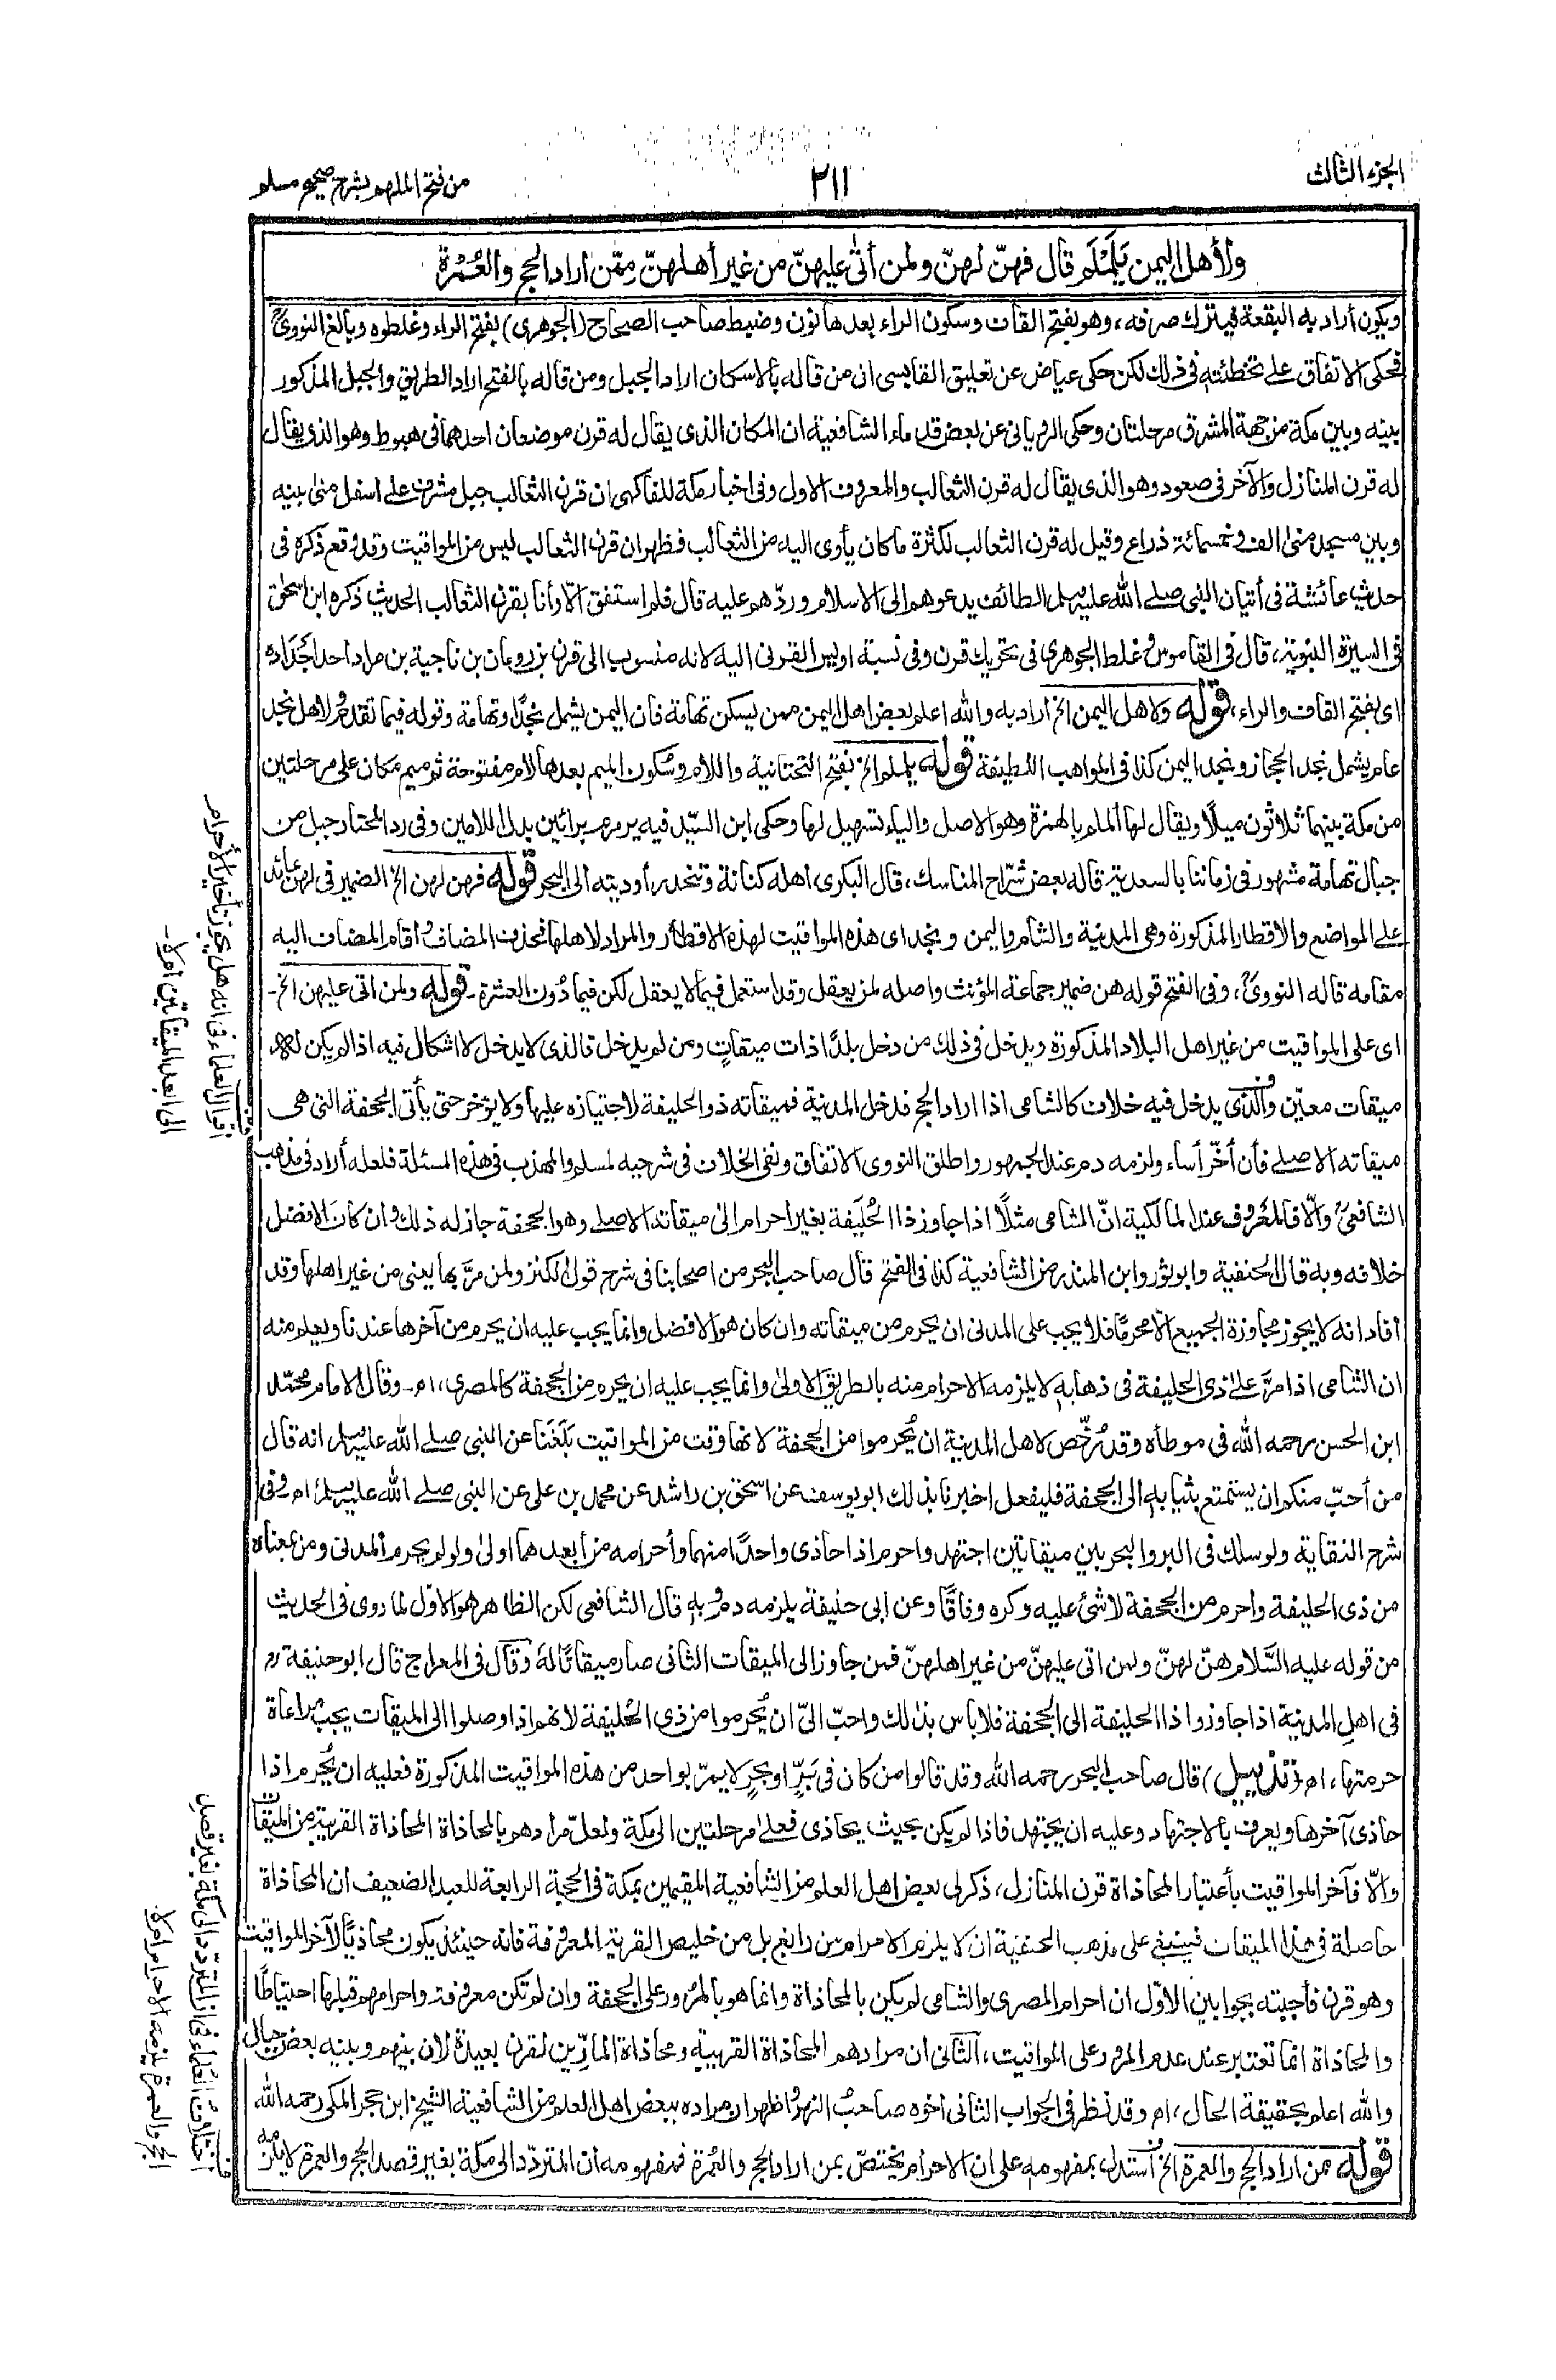 الجزء الثالث
٢١١
من فتح الملهم بشرح صحيح مسلم
ولأهل اليمن يَلَمْلَم قال فهنّ لهنّ ولمن أتٰى عليهنّ من غير أهلهنّ مِمّن اراد الحج والعُمْرة
ويكون أراد به البقعة فيترك صرفه، وهو بفتح القاف وسكون الراء بعدها نون وضبط صاحب الصحاح (الجوهری) بفتح الراء وغلطوه وبالغ النووی
فحكى الاتفاق على تخطئته فى ذلك لكن حكى عياض عن تعليق القابسى ان من قاله بالاسكان اراد الجبل ومن قاله بالفتح اراد الطريق والجبل المذكور
بينه وبين مكة من جهة المشرق مرحلتان وحكى الرويانى عن بعض قدماء الشافعية ان المكان الذى يقال له قرن موضعان احدهما فى هبوط وهو الذى يقال
له قرن المنازل والآخر فى صعود وهو الذى يقال له قرن الثعالب والمعروف الاول وفى اخبار مكة للفاكهى ان قرن الثعالب جبل مشرف على اسفل منى بينه
وبين مسجد منىٰ الف وخمسمائة ذراع وقيل له قرن الثعالب لكثرة ما كان يأوى اليه من الثعالب فظهر ان قرن الثعالب ليس من المواقيت وقد وقع ذكره فى
حديث عائشة فى أتيان النبى صلے الله عليه وسلم الطائف يدعوهم الى الاسلام وردّهم عليه قال فلم استفق الّا وأنا بقرن الثعالب الحديث ذكره ابن اسحٰق
فى السيرة النبوية، قال فى القاموس وغلط الجوهرى فى تحريك قرن وفى نسبة اويس القرنى اليه لانه منسوب الى قرن بن رومان بن ناجية بن مراد احد اَجْدَاده
اى بفتح القاف والراء، قوله ولاهل اليمن الخ اراد به والله اعلم بعض اهل اليمن ممن يسكن تهامة فان اليمن يشمل نجدًا وتهامة وقوله فيما تقدم ولاهل نجد
عام يشمل نجد الحجاز ونجد اليمن كذا فى المواهب اللطيفة قوله يلملم الخ بفتح التحتانية واللام وسُكون الميم بعدها لام مفتوحة ثم ميم مكان على مرحلتين
من مكة بينهما ثلاثون ميلًا ويقال لها ألملم بالهمزة وهو الاصل والياء تسهيل لها وحكى ابن السيّد فيه يرمرم برائين بدل اللامين وفى رد المحتار جبل من
جبال تهامة مشهور فى زماننا بالسعدية قاله بعض شرّاح المناسك، قال البكرى اهله كنانة وتنحدر أوديته الى البحر قوله فهن لهن الخ الضمير فى لهن عائد
على المواضع والاقطار المذكورة وهى المدينة والشام واليمن ونجد اى هذه المواقيت لهذه الاقطار والمراد لاهلها فحذف المضاف وأقام المضاف اليه
مقامه قاله النووى، وفى الفتح قوله هن ضمير جماعة المؤنث واصله لمن يعقل وقد استعمل فيما لا يعقل لكن فيما دُون العشرة۔ قوله ولمن اتى عليهن الخ۔
اى على المواقيت من غير اهل البلاد المذكورة ويدخل فى ذلك من دخل بلدًا ذات ميقاتٍ ومن لم يدخل فالذى لا يدخل لا اشكال فيه اذا لم يكن له
ميقات معيّن والذى يدخل فيه خلاف كالشامى اذا اراد الحج فدخل المدينة فميقاته ذو الحليفة لاجتيازه عليها ولا يؤخر حتى يأتى الجحفة التى هى
ميقاته الاصلے فأن أخّر أساء ولزمه دم عند الجمهور واطلق النووى الاتفاق ونفى الخلاف فى شرحيه لمسلم والمهذب فى هذه المسئلة فلعله أراد فى مذهب
الشافعى والّا فالمعروف عند المالكية انّ الشامى مثلًا اذا جاوز ذا الحُليفة بغير احرام الى ميقاته الاصلے وهو الجحفة جاز له ذلك وان كان الافضل
خلافه وبه قال الحنفية وابو ثور وابن المنذر من الشافعية كذا فى الفتح قال صاحب البحر من اصحابنا فى شرح قول الكنز ولمن مرّ بها يعنى من غير اهلها وقد
أفاد انه لا يجوز مجاوزة الجميع الّا محرمًا فلا يجب على المدنى ان يحرم من ميقاته وان كان هو الافضل وانما يجب عليه ان يحرم من آخرها عندنا ويعلم منه
ان الشامى اذا مرّ على ذى الحليفة فى ذهابه لا يلزمه الاحرام منه بالطريق الاولىٰ وانما يجب عليه ان يحرم من الجحفة كالمصرى، اه۔ وقال الامام محمّد
ابن الحسن رحمه الله فى موطأه وقد رُخّص لاهل المدينة ان يُحرموا من الجحفة لانها وقت من المواقيت بَلَغَنَا عن النبى صلے الله عليه وسلم انه قال
من أحبّ منكم ان يستمتع بثيابه الى الجحفة فليفعل اخبرنا بذلك ابو يوسف عن اسحٰق بن راشد عن محمد بن على عن النبى صلے الله عليه وسلم اه وفى
شرح النقاية ولو سلك فى البر والبحر بين ميقاتين اجتهد واحرم اذا حاذى واحدًا منهما وأحرامه من أبعدهما اولىٰ ولو لم يحرم المدنى ومن بمعناه
من ذى الحليفة واحرم من الجحفة لا شئ عليه وكره وفاقًا وعن ابى حنيفة يلزمه دم وبه قال الشافعى لكن الظاهر هو الاوّل لما روى فى الحديث
من قوله عليه السّلام هنّ لهنّ ولمن اتى عليهنّ من غير اهلهنّ فمن جاوز الى الميقات الثانى صار ميقاتًا لهٗ وقال فى المعراج قال ابو حنيفة رح
فى اهل المدينة اذا جاوزوا ذا الحليفة الى الجحفة فلا باس بذلك واحبّ الىّ ان يُحرموا من ذى الحُليفة لانهم اذا وصلوا الى الميقات يجب مراعاة
حرمتها، اه (تذييل) قال صاحب البحر رحمه الله وقد قالوا من كان فى بَرٍّ او بحرٍ لا يمرّ بواحد من هذه المواقيت المذكورة فعليه ان يُحرم اذا
حاذى آخرها ويعرف بألاجتهاد وعليه ان يجتهد فاذا لم يكن بحيث يحاذى فعلى مرحلتين الى مكة ولعلّ مرادهم بالمحاذاة المحاذاة القريبة من الميقات
والّا فآخر المواقيت بأعتبار المحاذاة قرن المنازل، ذكر لى بعض اهل العلم من الشافعية المقيمين بمكة فى الحجة الرابعة للعبد الضعيف ان المحاذاة
حاصلة فى هذا الميقات فينبغى على مذهب الحنفية ان لا يلزم الاحرام من رابغ بل من خليص القرية المعروفة فانه حينئذ يكون محاذيًا لآخر المواقيت
وهو قرن فأجبته بجوابين الاوّل ان احرام المصرى والشامى لم يكن بالمحاذاة وانما هو بالمرور على الجحفة وان لم تكن معروفة واحرامهم قبلها احتياطًا
والمحاذاة انما تعتبر عند عدم المرور على المواقيت، الثانى ان مرادهم المحاذاة القريبة ومحاذاة المارّين لقرن بعيدة لان بينهم وبينه بعض جبال
والله اعلم بحقيقة الحال، اه وقد نظر فى الجواب الثانى أخوه صاحب النهر واظهر ان مراده ببعض اهل العلم من الشافعية الشيخ ابن حجر المكى رحمه الله
قوله ممن اراد الحج والعمرة الخ استدل بمفهومه على ان الاحرام يختصّ بمن اراد الحج والعُمرة فمفهومه أن المتردّد الى مكة بغير قصد الحج والعمرة لا يلزمه
أقوال العلماء فى انه هل يجوز تأخير الأحرام
الى ابعد الميقاتين أم لا۔
اختلاف العلماء فى ان المتردد الى مكة بغير قصد
الحج والعمرة يلزمه الاحرام ام لا۔